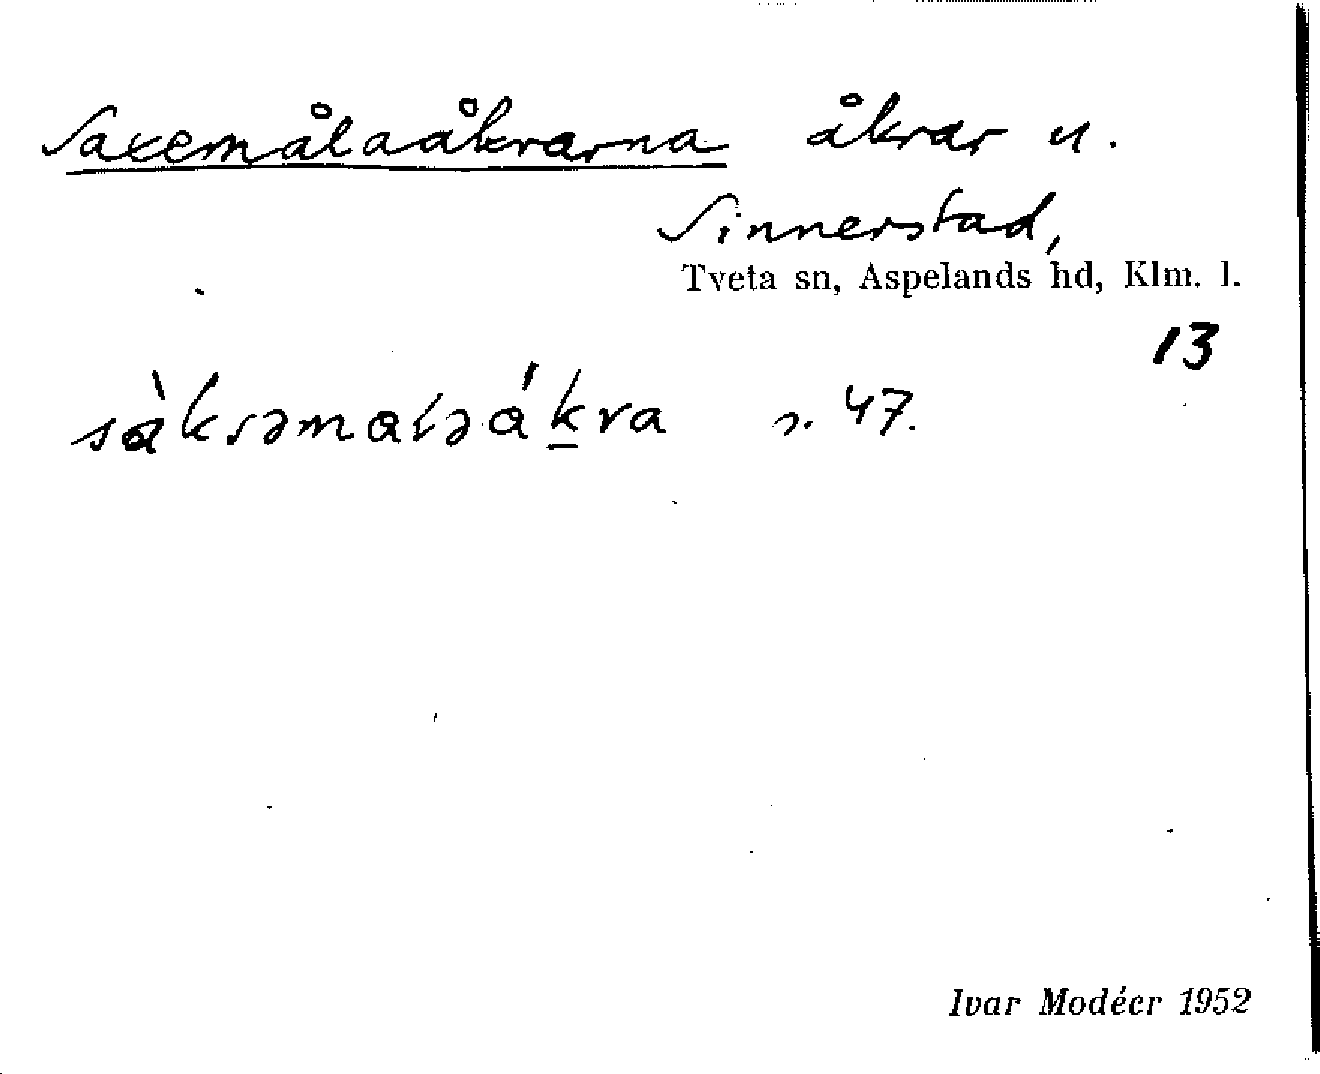 Saxemålaåkrarna åkrar u.
Sinnerstad,
Tveta sn, Aspelands hd, Klm. l.
13
sàksəmaləákra s. 47.
Ivar Modéer 1952